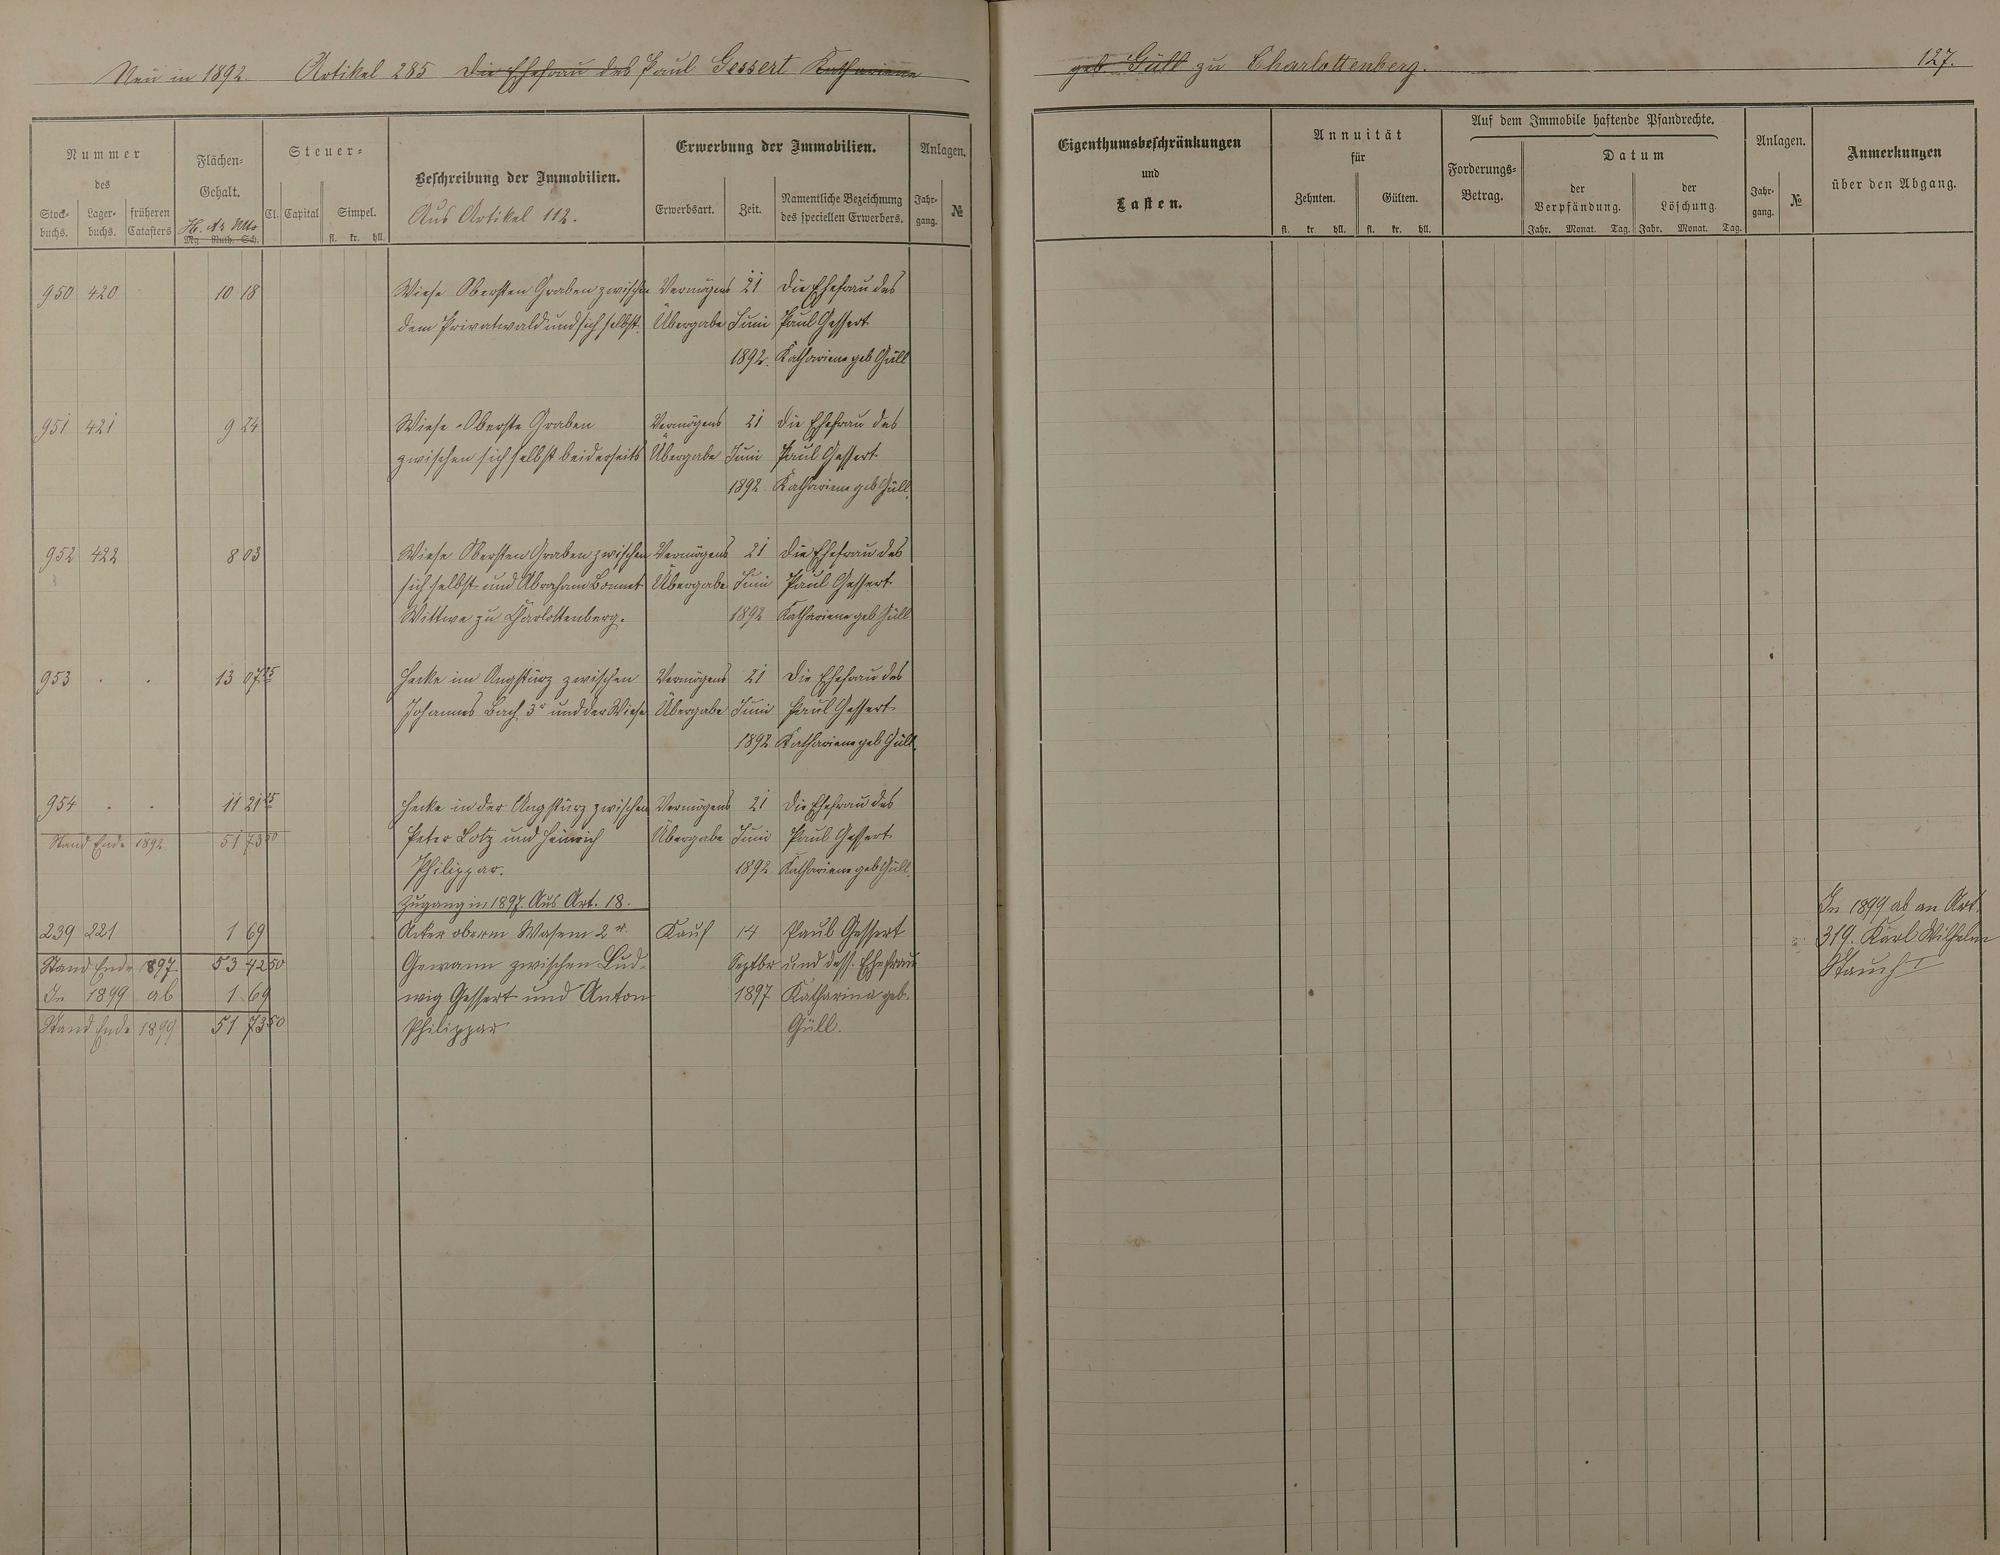 Neu in 1892. Artikel 285 die Ehefrau des Paul Gessert Kathariene geb Güll zu Charlottenberg. 127.
Nummer
des
Stock-
buchs.
Lager-
buchs.
früheren
Catasters
Flächen-
Gehalt.
H. Ar Mtr
Mg. Ruth. Sch.
Steuer-
Cl. Capital Simpel.
fl. kr. hll.
Beschreibung der Immobilien.
Aus Artikel 112.
Erwerbung der Immobilien.
Erwerbsart. Zeit.
Namentliche Bezeichnung
des speciellen Erwerbers.
Anlagen.
Jahr-
gang.
№
Eigenthumsbeschränkungen
und
Lasten.
Annuität
für
Zehnten. Gülten.
fl. kr. hll. fl. kr. hll.
Auf dem Immobile haftende Pfandrechte.
Forderungs-
Betrag.
Datum
der
Verpfändung.
der
Löschung.
Jahr. Monat. Tag. Jahr. Monat. Tag.
Anlagen.
Jahr-
gang.
№
Anmerkungen
über den Abgang.
950 420 10 18 Wiese Obersten Graben zwischen Vermögens 21 die Ehefrau des
dem Privatwald und sich selbst. Übergabe Juni Paul Gessert
1892. Kathariene geb Güll
951 421 9 24 Wiese Oberste Graben Vermögens 21 die Ehefrau des
zwischen sich selbst beiderseits Übergabe Juni Paul Gessert
1892 Kathariene geb Güll.
952 422 8 03 Wiese Obersten Graben zwischen Vermögens 21 die Ehefrau des
sich selbst und Abraham Bonnet Übergabe Juni Paul Gessert
Wittwe zu Charlottenberg. 1892 Kathariene geb Güll
953 . . 13 07 25 Hecke im Angstürz zwischen Vermögens 21 Die Ehefrau des
Johannes Bach 3r und der Wiese Übergabe Juni Paul Gessert
1892 Kathariene geb Güll.
954 . . 11 21 25 Hecke in der Angstürz zwischen Vermögens 21 Die Ehefrau des
Stand Ende 1892. 51 73 50 Peter Lotz und Heinrich Übergabe Juni Paul Gessert
Philippar. 1892 Kathariene geb Güll.
Zugang in 1897. Aus Art. 18.
239 221 1 69 Acker oberm Wasem 2r. Kauf 14 Paul Gessert
Stand Ende 1897. 53 42 50 Gewann zwischen Lud- Septbr und dess. Ehefrau
In 1899 ab 1 69 wig Gessert und Anton 1897 Katharina geb.
Stand Ende 1899 51 73 50 Philippar Güll.
In 1899 ab an Art.
319. Karl Wilhelm
Stauch I